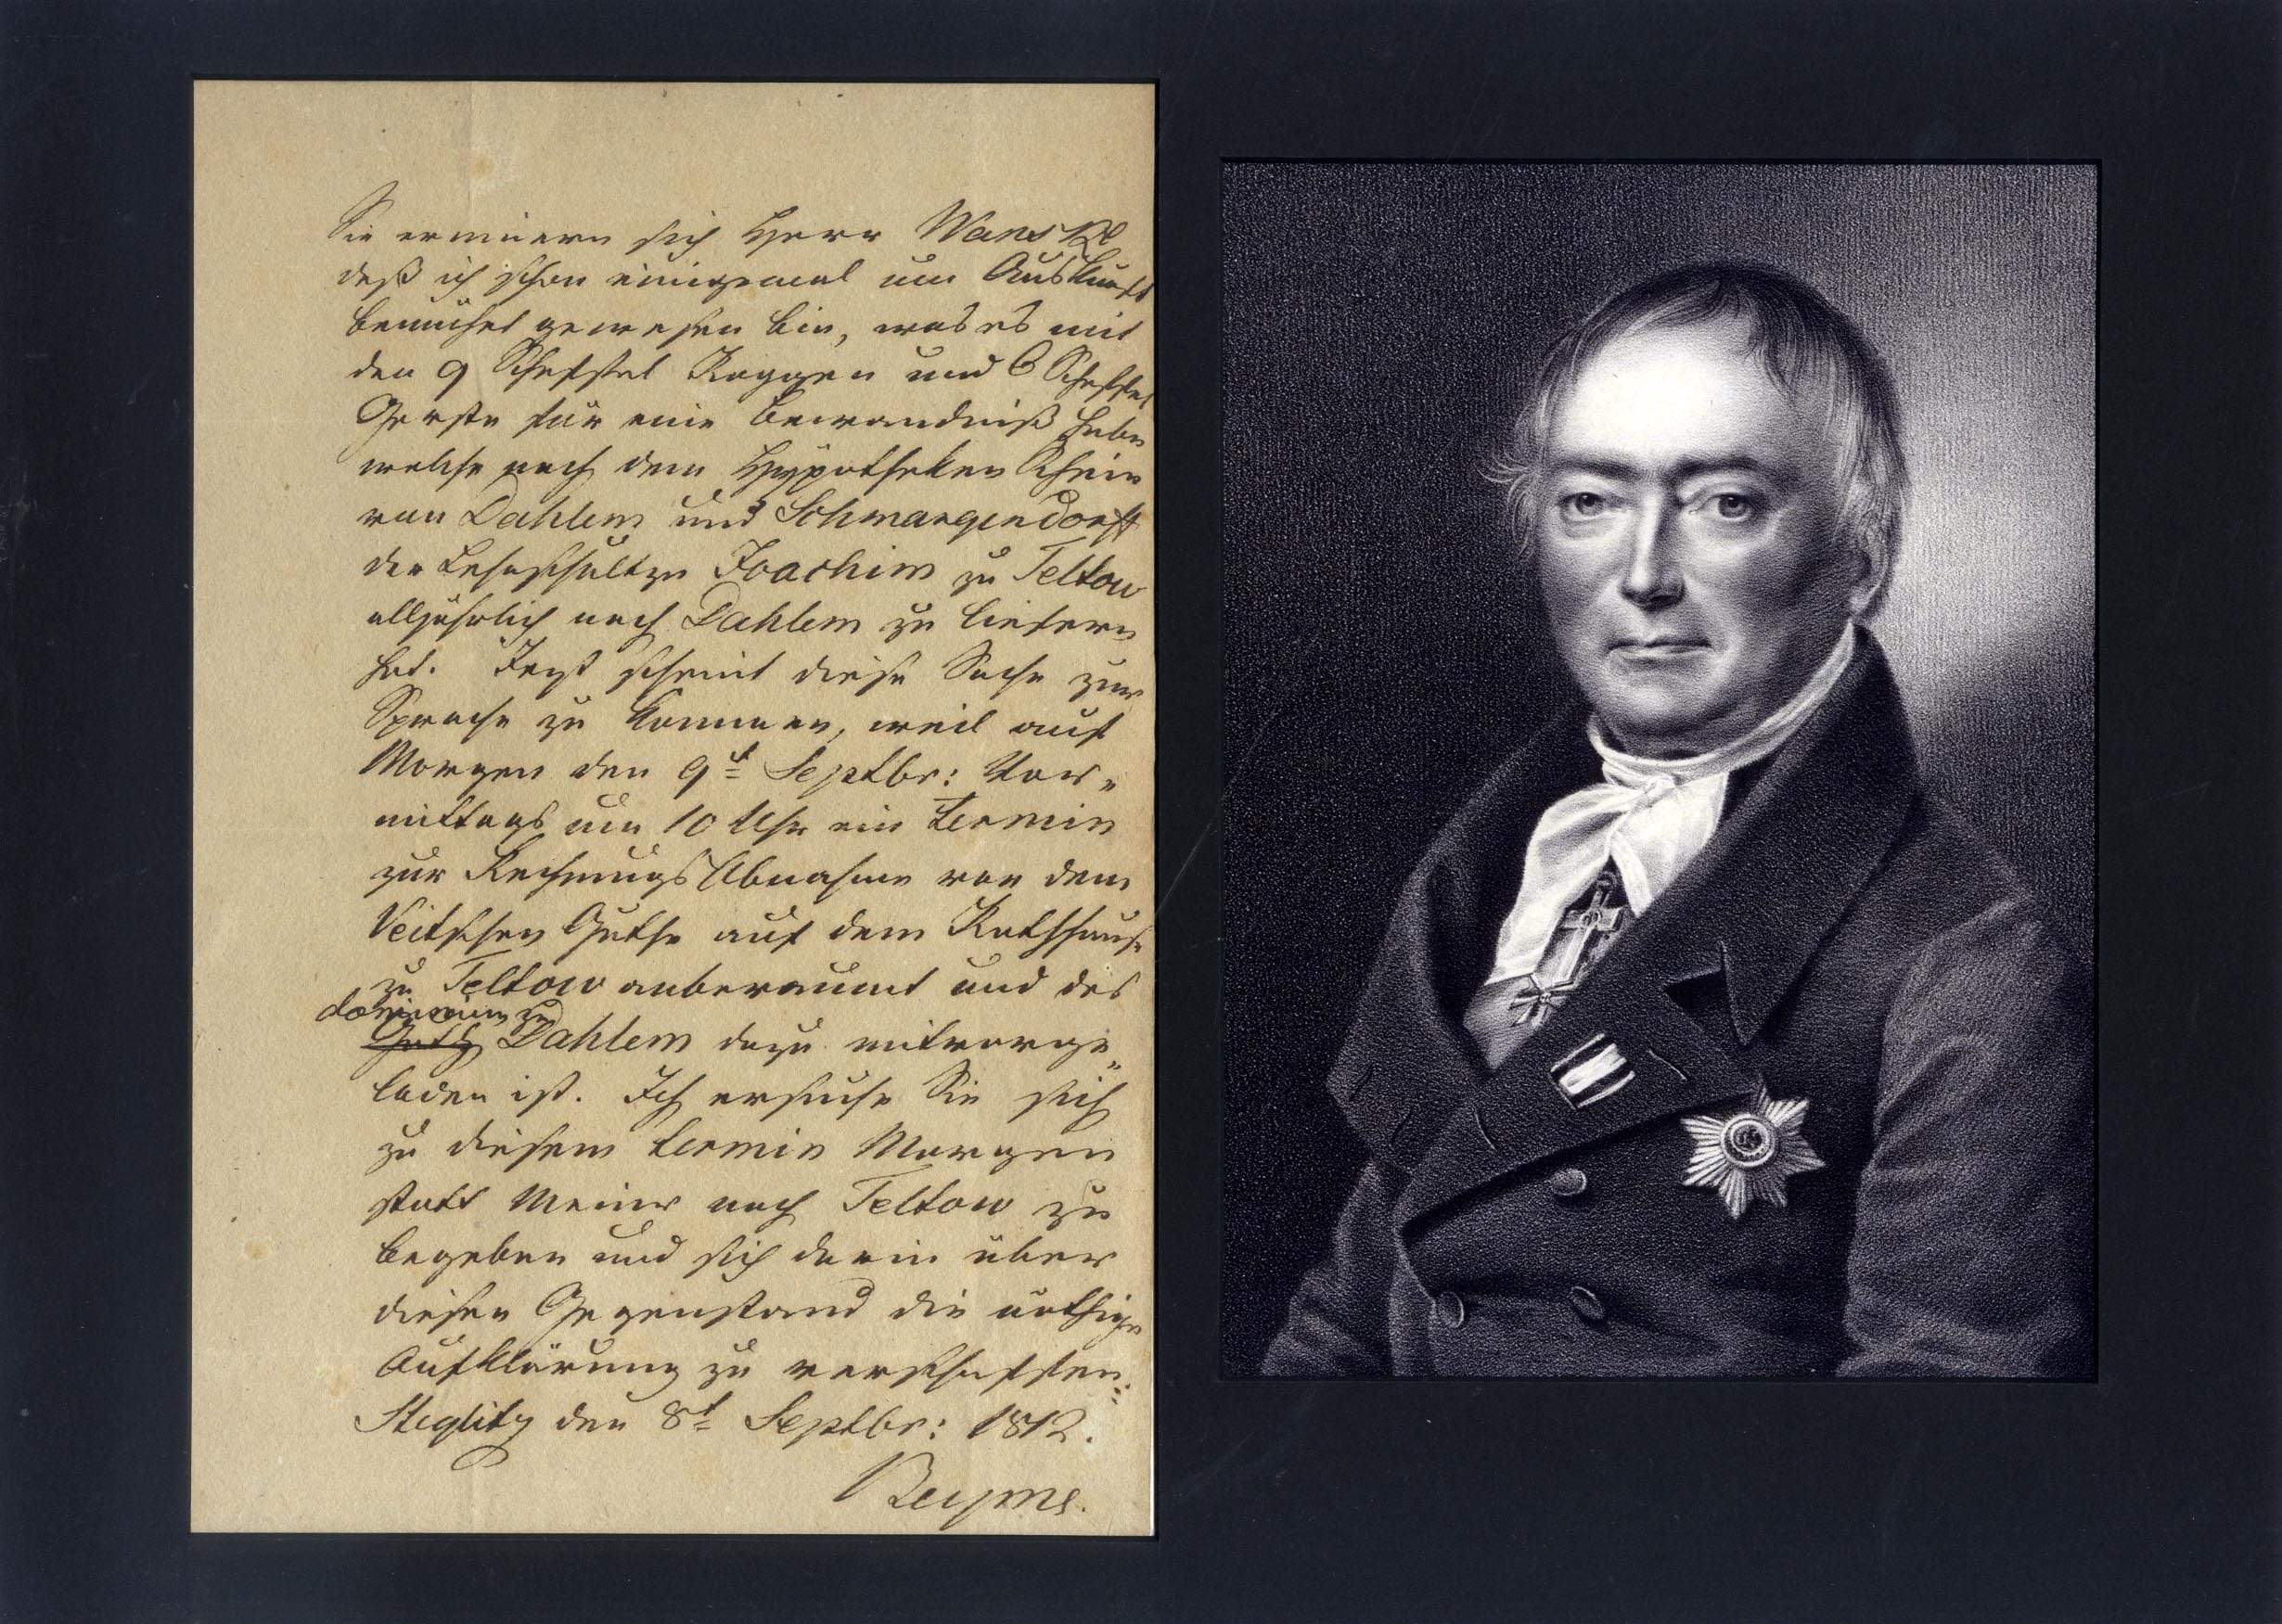 Sie erinnern sich Herr Wanske
daß ich schon einigemal um Auskunft
bemühet gewesen bin, was es mit
den 9 Scheffel Roggen und 6 Scheffel
Gerste für eine Bewandniß habe
welche nach dem Hypotheken Schein
von Dahlem und Schmargendorff
der Lehnschultze Joachim zu Teltow
alljährlich nach Dahlem zu liefern
hat. Jetzt scheint diese Sache zur
Sprache zu kommen, weil auf
Morgen den 9t Septbr: Vor-
mittags um 10 Uhr ein Termin
zur Rechnungs Abnahme von dem
Veitschen Guthe auf dem Rathhause
zu Teltow anberaumt und das
dominium zu
Guth Dahlem dazu mitvorge-
laden ist. Ich ersuche Sie sich
zu diesem Termin Morgen
statt Meiner nach Teltow zu
begeben und sich darin über
diesen Gegenstand die nöthige
Aufklärung zu verschaffen.
Steglitz den 8t Septbr: 1812.
Beyme.